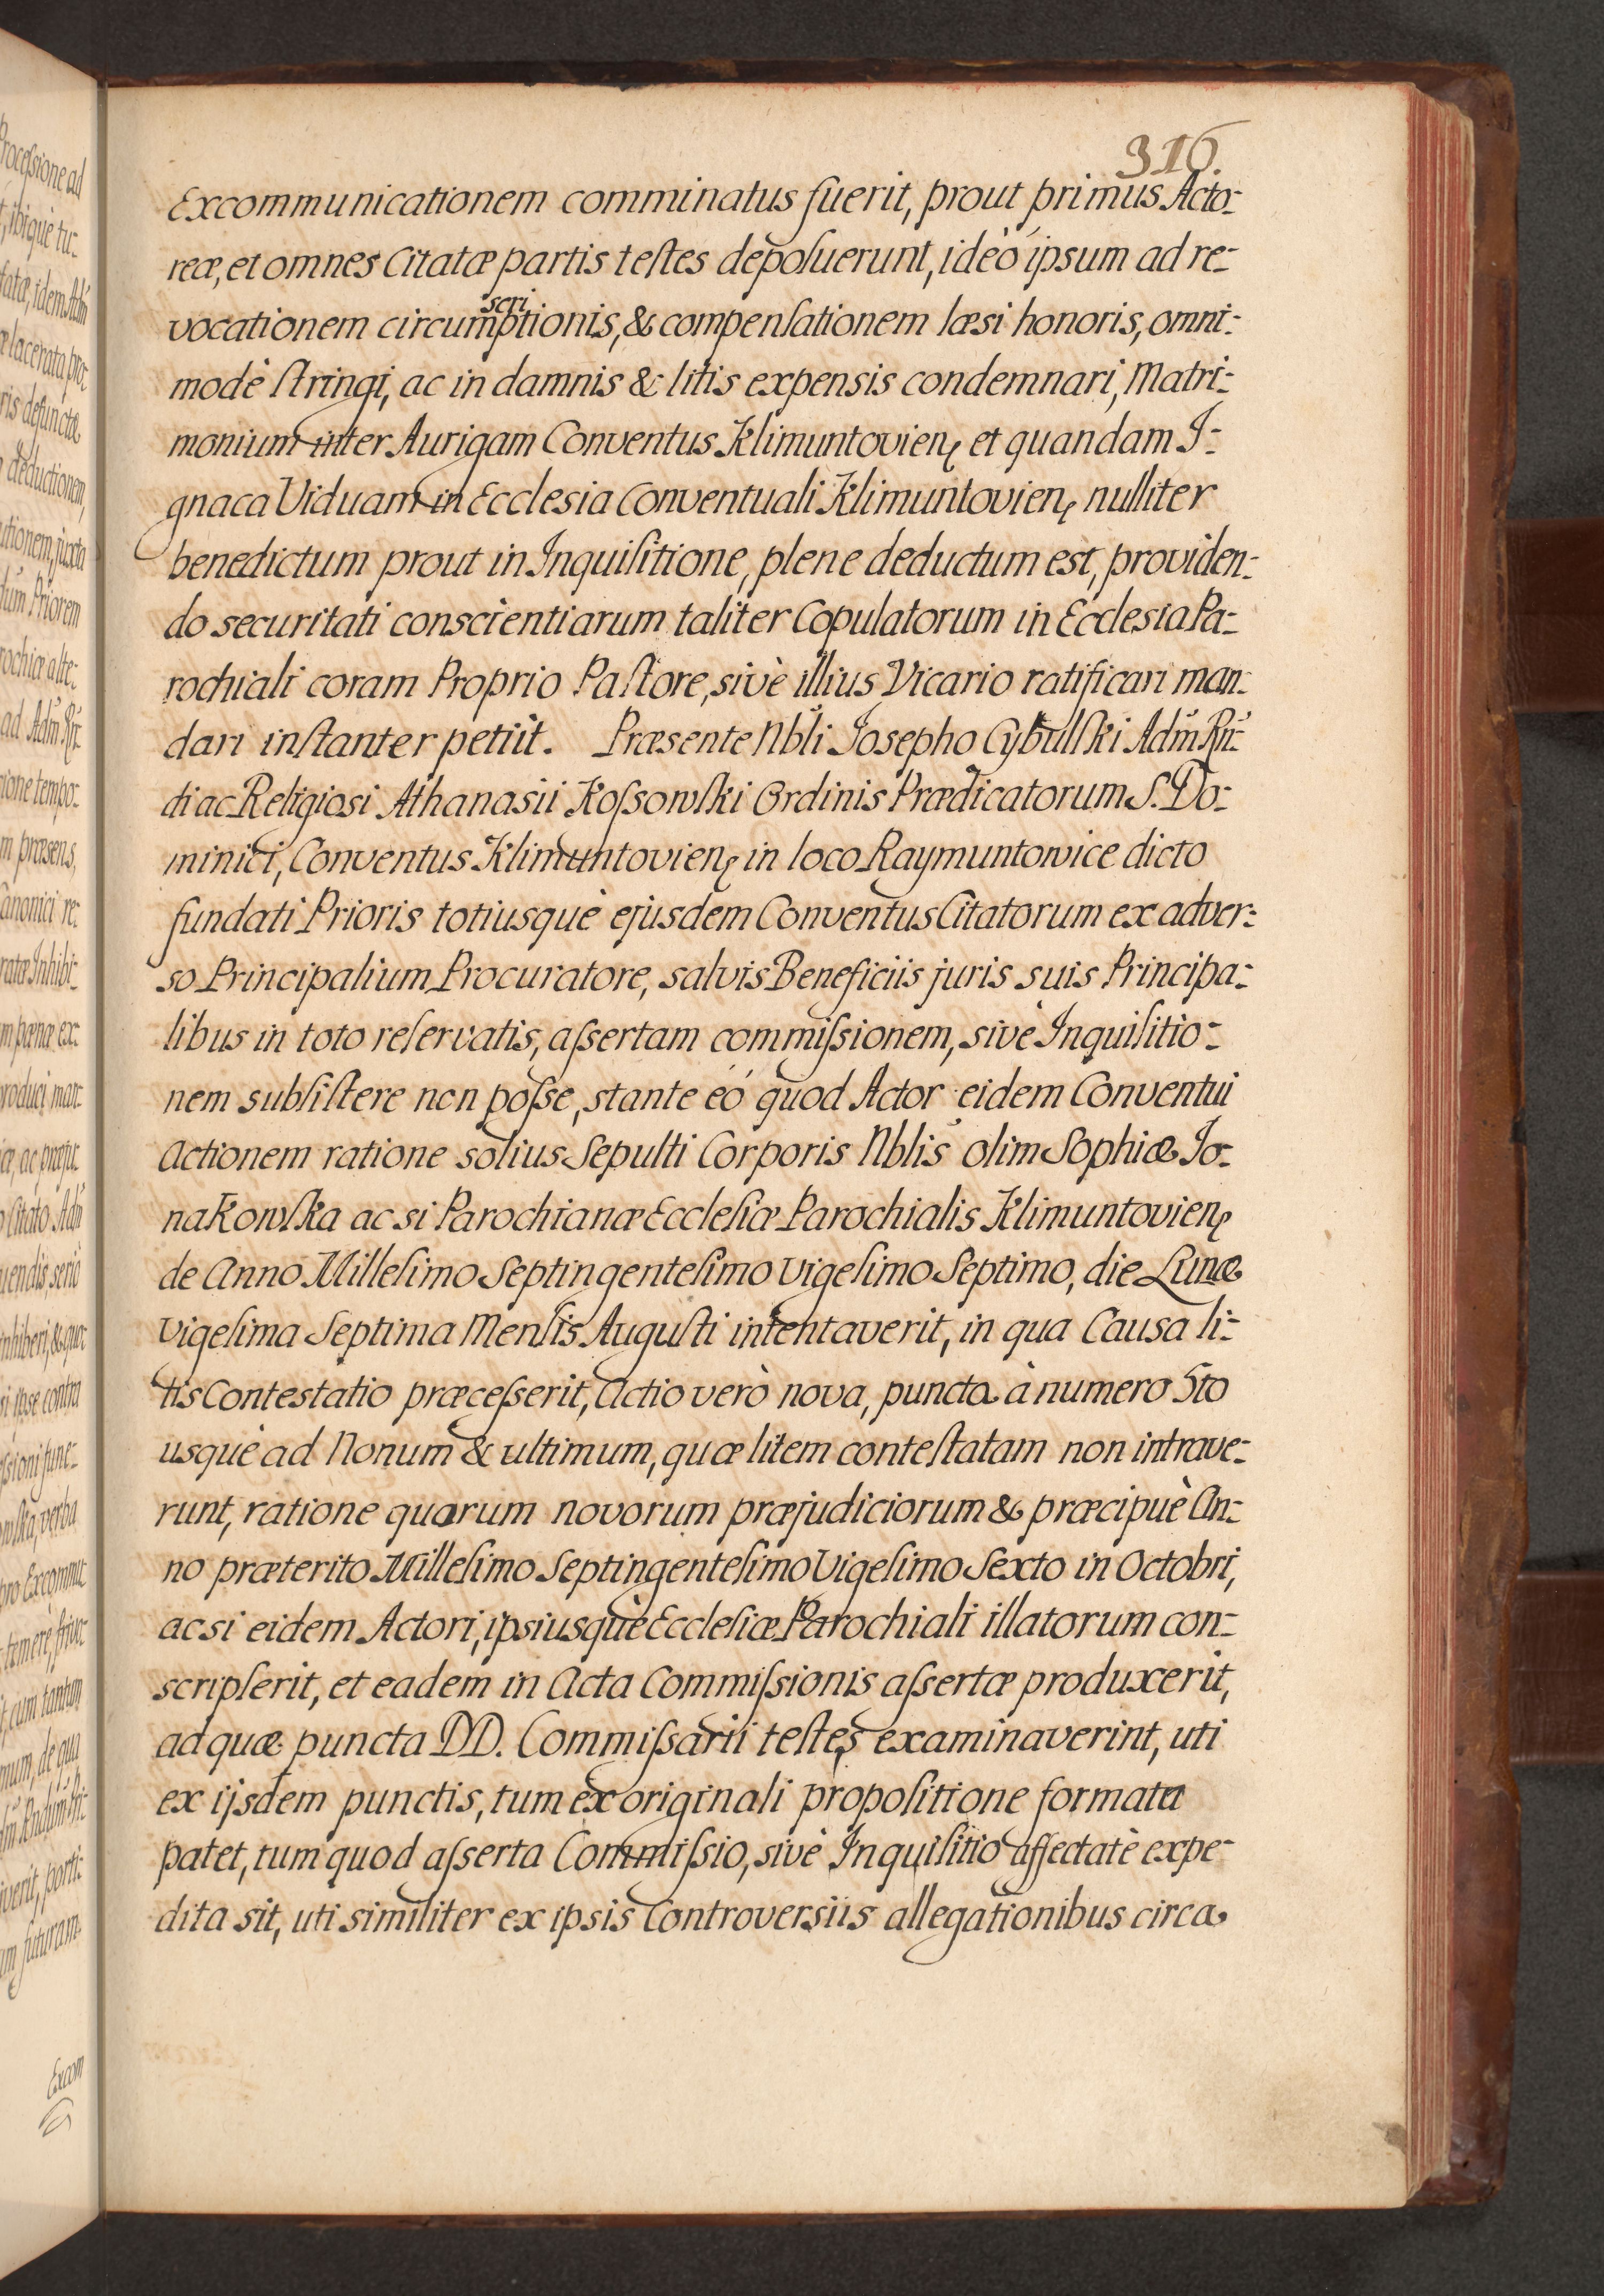 316.
Excommunicationem comminatus fuerit, prout primus Acto-
reæ, et omnes Citatæ partis teſtes depoſuerunt, ideò ipsum ad re-
vocationem circumscriptionis, & compenſationem læsi honoris, omni-
modè ſtringi, ac in damnis & litis expensis condemnari, Matri-
monium inter Aurigam Conventus Klimuntovien: et quandam I-
gnaca Viduam in Ecclesia Conventuali Klimuntovien: nulliter
benedictum prout in Inquiſitione, plene deductum est, providen-
do securitati conscientiarum taliter Copulatorum in Ecclesia Pa-
rochiali coram Proprio Paſtore, sivè illius Vicario ratificari man-
dari inſtanter petiit. Præsente Nbli Josepho Cybulſki Adm Rn-
di ac Religiosi Athanasii Koſsowſki Ordinis Prædicatorum S. Do-
minici, Conventus Klimuntovien: in loco Raymuntowice dicto
fundati Prioris totiusquè ejusdem Conventus Citatorum ex adver-
so Principalium Procuratore, salvis Beneficiis juris suis Principa-
libus in toto reſervatis, aſsertam commiſsionem, sivè Inquiſitio-
nem subſiſtere non poſse, stante eó quod Actor eidem Conventui
Actionem ratione solius Sepulti Corporis Nblis olim Sophiæ Jo-
naKowſka ac si Parochianæ Eccleſiæ Parochialis Klimuntovien:
de Anno Milleſimo Septingenteſimo Vigeſimo Septimo, die Lunæ
Vigeſima Septima Menſis Auguſti intentaverit, in qua Causa li-
tis Contestatio præceſserit, Actio verò nova, puncta à numero 5to
usquè ad Nonum & ultimum, quæ litem conteſtatam non intrave-
runt, ratione quorum novorum præjudiciorum & præcipuè An-
no præterito Milleſimo Septingenteſimo Vigeſimo Sexto in Octobri,
ac si eidem Actori, ipsiusquè Eccleſiæ Parochiali illatorum con-
scripſerit, et eadem in Acta Commiſsionis aſsertæ produxerit,
ad quæ puncta DD. Commiſsarii teſtes examinaverint, uti
ex ijsdem punctis, tum ex originali propoſitione formata
patet, tum quod aſserta Commiſsio, sivè Inquiſitio affectatè expe-
dita sit, uti similiter ex ipsis Controversiis allegationibus circa